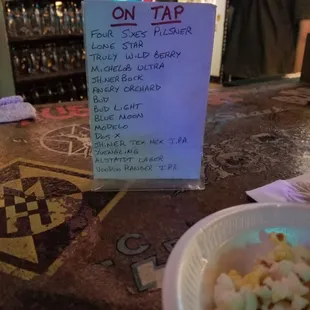 ON TAP
FOUR SIXES PILSNER
LONE STAR
TRULY WILD BERRY
MICHELOB ULTRA
SHINER BOCK
ANGRY ORCHARD
BUD
BUD LIGHT
BLUE MOON
MODELO
DOS X
SHINER TEX MEX IPA
YUENGLING
ALTSTADT LAGER
VOODOO RANGER IPA